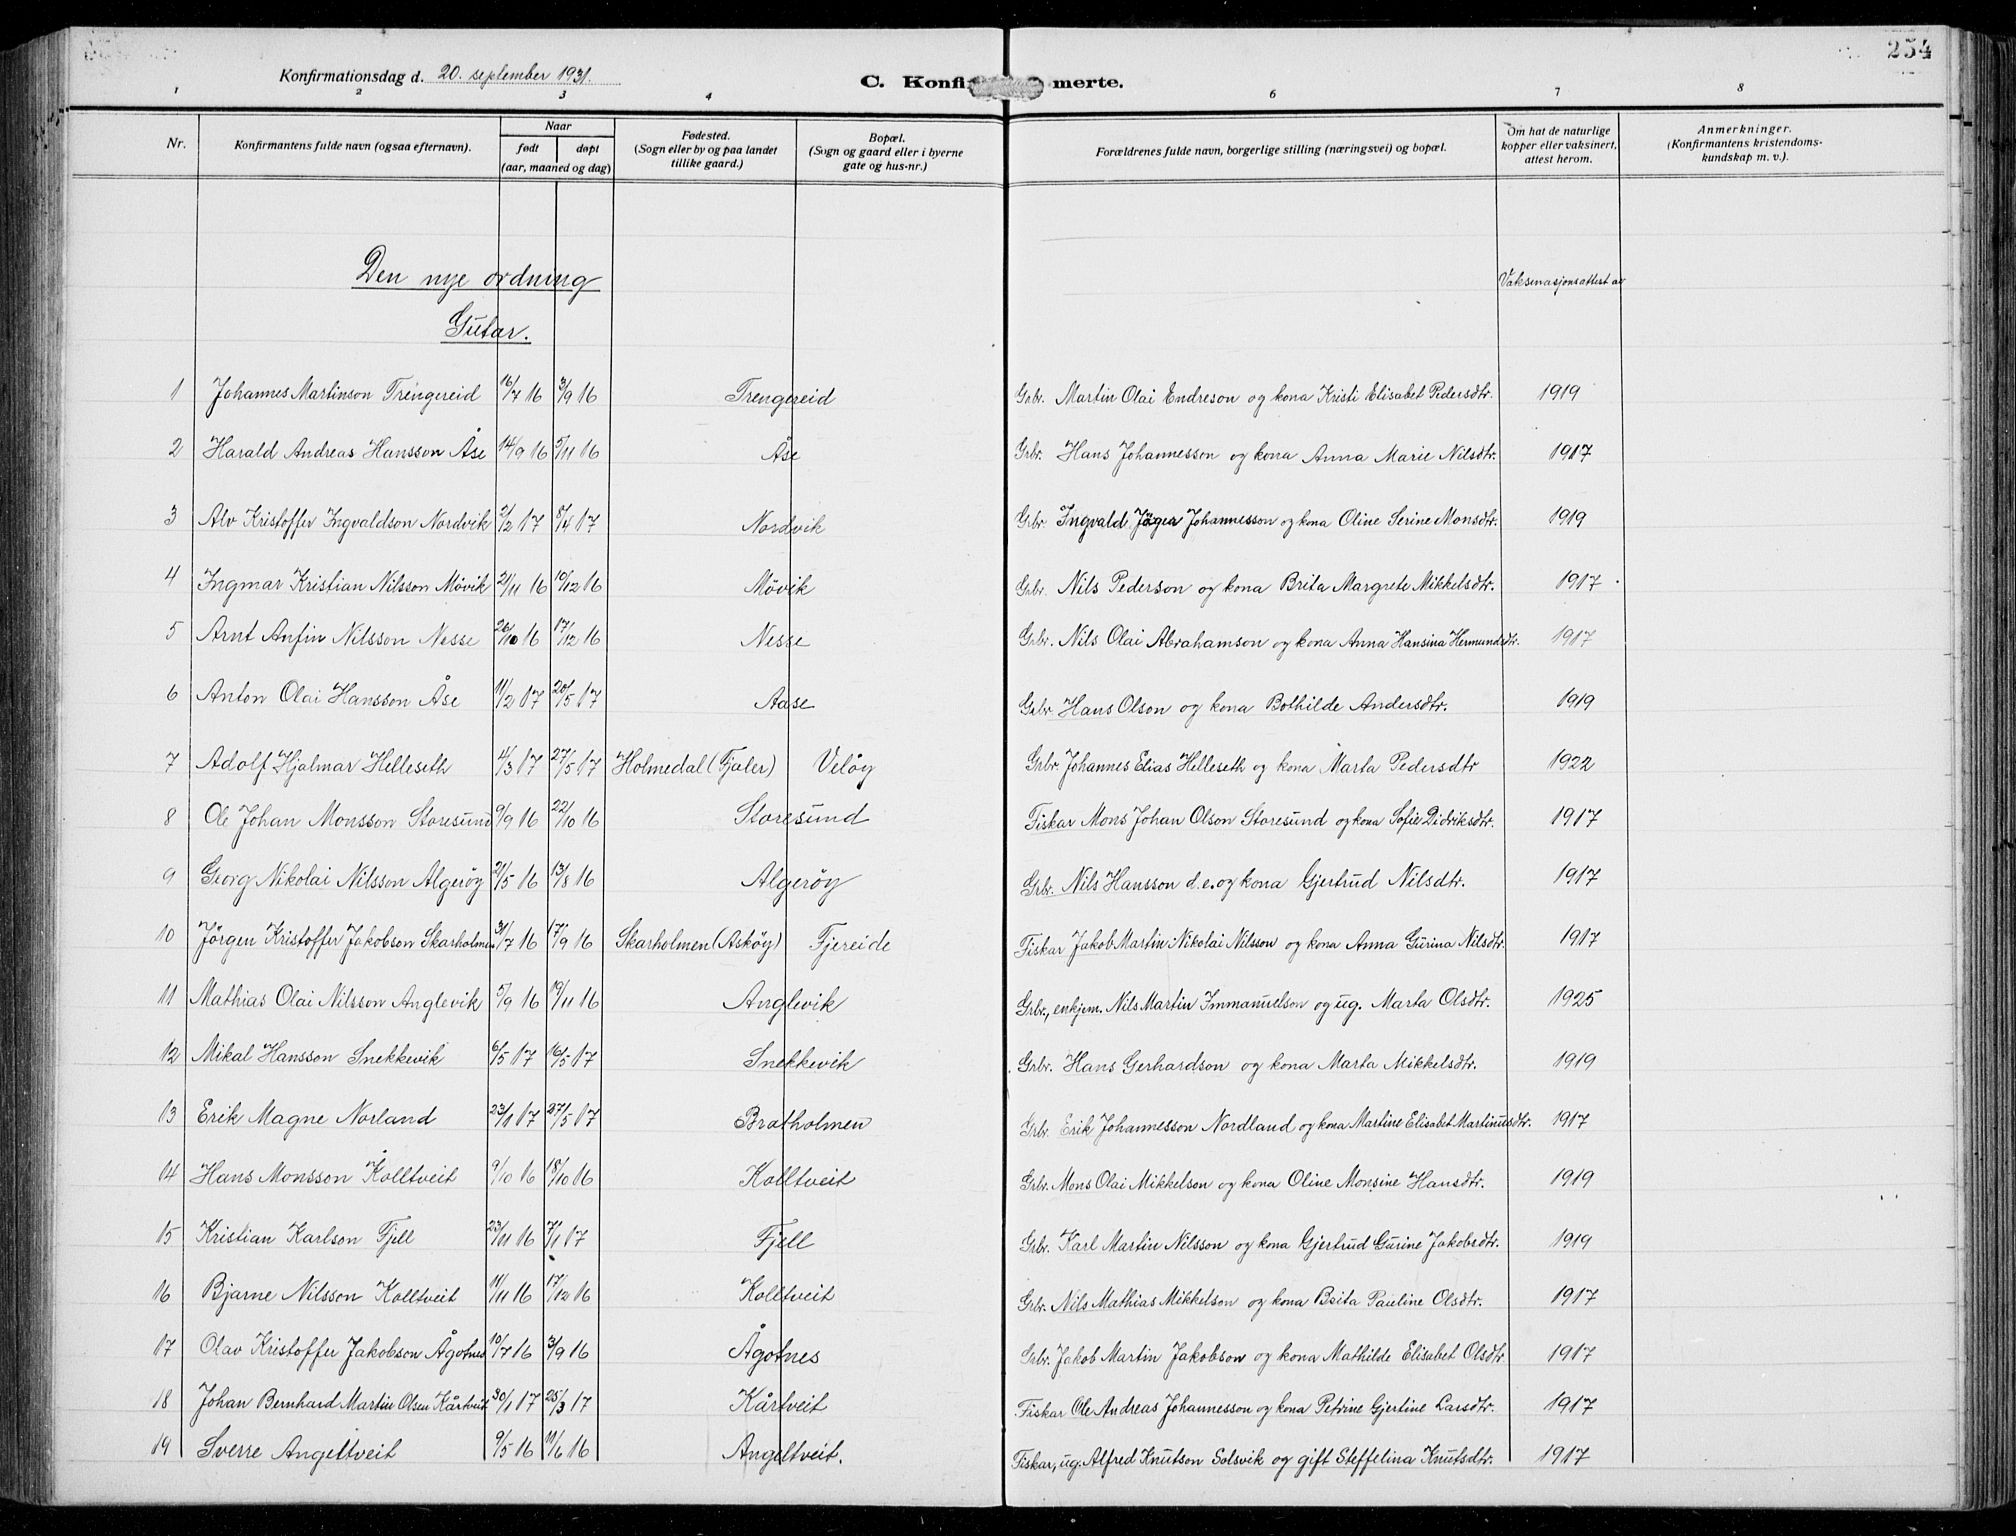 254
Konfirmationsdag d. 20. september 1931.
C. Konfi merte.
1 2 3 4 6 7 8
Nr. Konfirmantens fulde navn (ogsaa efternavn). Naar født døpt (aar, maaned og dag) Fødested. (Sogn eller by og paa landet tillike gaard.) Bopæl. (Sogn og gaard eller i byerne gate og hus-nr.) Forældrenes fulde navn, borgerlige stilling (næringsvei) og bopæl. Om hat de naturlige kopper eller vaksinert, attest herom. Anmerkninger. (Konfirmantens kristendomskundskap m. v.).
Den nye ordning Vaksenasjonsattest av
Gutar.
1 Johannes Martinson Trengereid 16/7 16 3/9 16 Trengereid Grbr. Martin Olai Endreson og kona Kristi Elisabet Pedersdtr. 1919
2 Harald Andreas Hansson Åse 14/9 16 5/11 16 Åse Grbr. Hans Johannesson og kona Anna Marie Nilsdtr. 1917
3 Alv Kristoffer Ingvaldson Nordvik 2/2 17 8/4 17 Nordvik Grbr Ingvald Johannesson og kona Oline Serine Monsdtr. 1919
4 Ingmar Kristian Nilsson Mövik 21/11 16 10/12 16 Mövik Grbr. Nils Pederson og kona Brita Margrete Mikkelsdtr. 1917
5 Arnt Anfin Nilsson Nesse 26/10 16 17/12 16 Nesse Grbr. Nils Olai Abrahamson og kona Anna Hansina Hermundsdtr. 1917
6 Anton Olai Hansson Åse 11/2 17 20/5 17 Aase Grbr. Hans Olson og kona Bothilde Andersdtr. 1919
7 Adolf Hjalmar Helleseth 4/3 17 27/5 17 Holmedal (Fjaler) Velöy Grbr. Johannes Elias Helleseth og kona Marta Pedersdtr 1922
8 Ole Johan Monsson Storesund 9/9 16 22/10 16 Storesund Fiskar Mons Johan Olson Storesund og kona Sofie Didriksdtr. 1917
9 Georg Nikolai Nilsson Algeröy 21/5 16 13/8 16 Algeröy Grbr. Nils Hansson d.e. og kona Gjertrud Nilsdtr. 1917
10 Jörgen Kristoffer Jakobson Skarholmen 31/7 16 17/9 16 Skarholmen (Asköy) Fjereide Fiskar Jakob Martin Nikolai Nilsson og kona Anna Gurina Nilsdtr. 1917
11 Mathias Olai Nilsson Anglevik 5/9 16 19/11 16 Anglevik Grbr., enkjem. Nils Martin Immanuelson og ug. Marta Olsdtr. 1925
12 Mikal Hansson Snekkevik 6/5 17 16/5 17 Snekkevik Grbr. Hans Gerhardson og kona Marta Mikkelsdtr. 1919
13 Erik Magne Norland 23/1 17 27/5 17 Bratholmen Grbr. Erik Johannesson Nordland og kona Martine Elisabet Martinusdtr. 1917
14 Hans Monsson Kolltveit 9/10 16 18/10 16 Kolltveit Grbr. Mons Olai Mikkelson og kona Oline Monsine Hansdtr. 1919
15 Kristian Karlson Fjell 23/11 16 7/1 17 Fjell Grbr. Karl Martin Nilsson og kona Gjertrud Gurine Jakobsdtr. 1919
16 Bjarne Nilsson Kolltveit 11/11 16 17/12 16 Kolltveit Grbr. Nils Mathias Mikkelson og kona Brita Pauline Olsdtr. 1917
17 Olav Kristoffer Jakobson Ågotnes 10/7 16 3/9 16 Ågotnes Grbr. Jakob Martin Jakobson og kona Mathilde Elisabet Olsdtr 1917
18 Johan Bernhard Martin Olsen Kårtveit 30/1 17 25/3 17 Kårtveit Fiskar Ole Andreas Johannesson og kona Petrine Gjertine Larsdtr. 1917
19 Sverre Angeltveit 9/5 16 11/6 16 Angeltveit. Fiskar, ug. Alfred Knutson Solsvik og gift Steffelina Knutsdtr. 1917